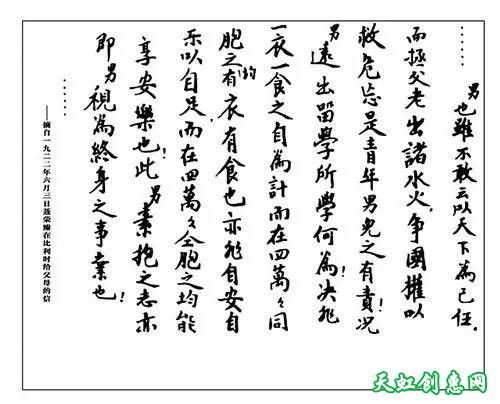 ……
男也雖不敢云以天下為己任.
而拯父老出諸水火,争國權以
救危忘是青年男兒之有責!况
男遠出留學所學何為!决非
一衣一食之自為計而在四萬々同
胞之均有衣有食也亦非自安自
乐以自足而在四萬々仝胞之均能
享安樂也!此男素抱之志亦
即男視為終身之事業也!
……
——摘自一九二二年六月三日聂荣臻在比利时给父母的信
天虹创意网